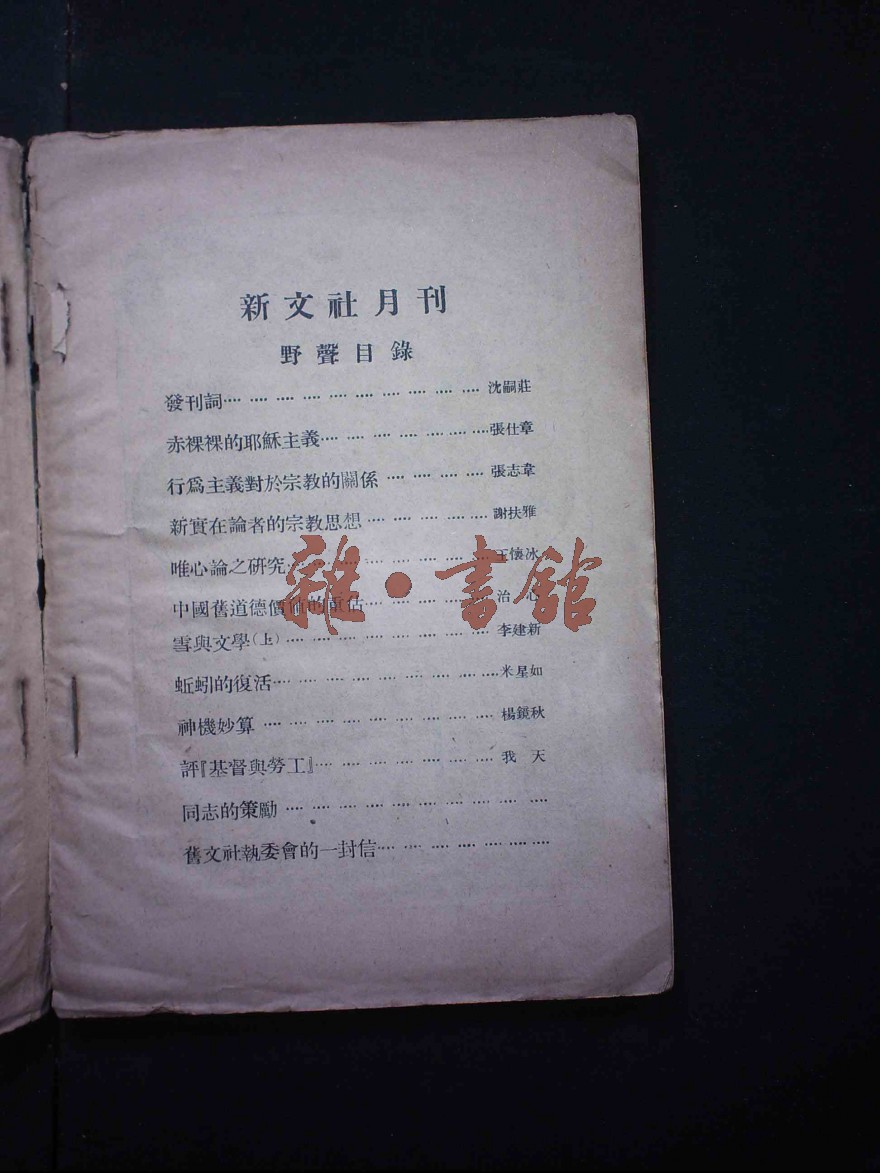 新文社月刊
野聲目錄
發刊詞………………………沈嗣莊
赤裸裸的耶穌主義………………………張仕章
行爲主義對於宗教的關係………………………張志韋
新實在論者的宗教思想………………………謝扶雅
唯心論之研究………………………王懷冰
中國舊道德價值的重估………………………治心
雪與文學(上)………………………李建新
蚯蚓的復活………………………米星如
神機妙算………………………楊鏡秋
評『基督與勞工』………………………我天
同志的策勵………………………
舊文社執委會的一封信………………………
雜·書館